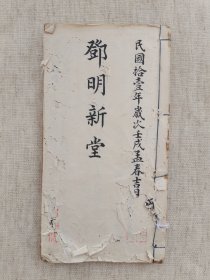 民國拾壹年歲次壬戌孟春吉日
鄧明新堂